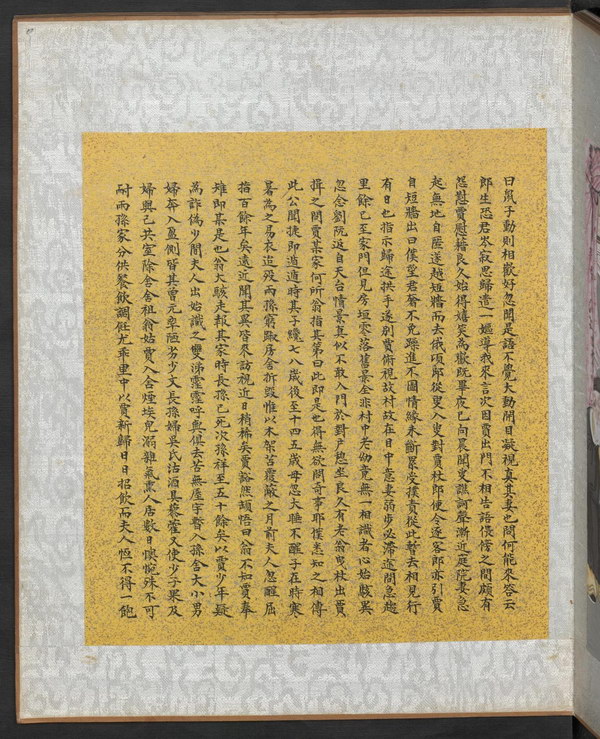 曰鼠子動則相歡好忽聞是語不覺大動開目凝視真其妻也問何能來答云
郎生恐君岑寂思歸遣一嫗導我來言次因賈出門不相告語偎傍之間頗有
怨懟賈慰藉良久始得嬉笑為歡既畢夜已向晨聞叟譙訶聲漸近庭院妻急
起無地自匿遂越短牆而去俄頃郎從叟入叟對賈杖郎便令逐客郎亦引賈
自短牆出曰僕望君奢不免躁進不圖情緣未斷累受撲責從此暫去相見行
有日也指示歸途拱手遂別賈俯視故村故在目中意妻弱步必滯途間急趨
里餘已至家門但見房垣零落舊景全非村中老幼竟無一相識者心始駭異
忽念劉阮返自天台情景真似不敢入門於對戶憩坐良久有老翁曳杖出賈
揖之問賈某家何所翁指其第曰此即是也得無欲問奇事耶僕悉知之相傳
此公聞捷即遁遁時其子纔七八歲後至十四五歲母忽大睡不醒子在時寒
暑為之易衣迨歿兩孫窮踧房舍拆毀惟以木架苫覆蔽之月前夫人忽醒屈
指百餘年矣遠近聞其異皆來訪視近日稍稀矣賈豁然頓悟曰翁不知賈奉
雉即某是也翁大駭走報其家時長孫已死次孫祥至五十餘矣以賈少年疑
為詐偽少間夫人出始識之雙涕霪霪呼與俱去苦無屋宇暫入孫舍大小男
婦奔入盈側皆其曾元率陋劣少文長孫婦吳氏沽酒具藜藿又使少子果及
婦與己共室除舍舍祖翁姑賈入舍煙埃兒溺雜氣熏人居數日懊惋殊不可
耐兩孫家分供餐飲調飪尤乖里中以賈新歸日日招飲而夫人恆不得一飽